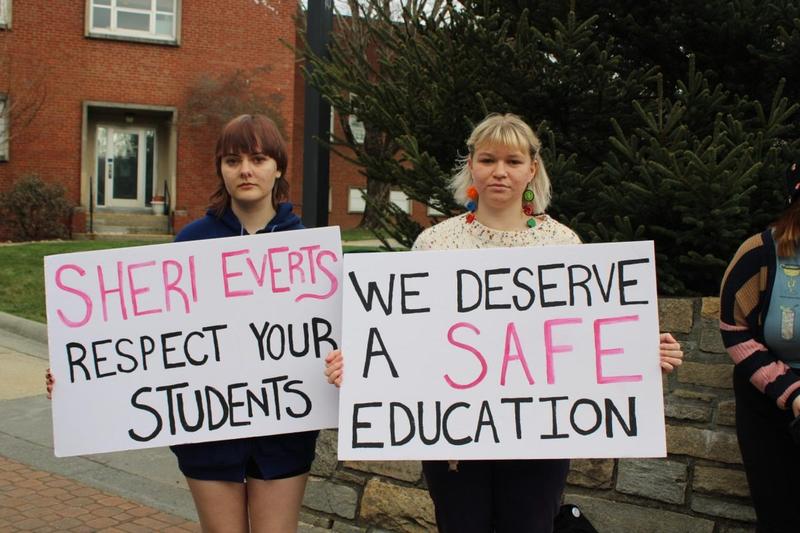 SHERI EVERTS
RESPECT YOUR
STUDENTS
WE DESERVE
A SAFE
EDUCATION